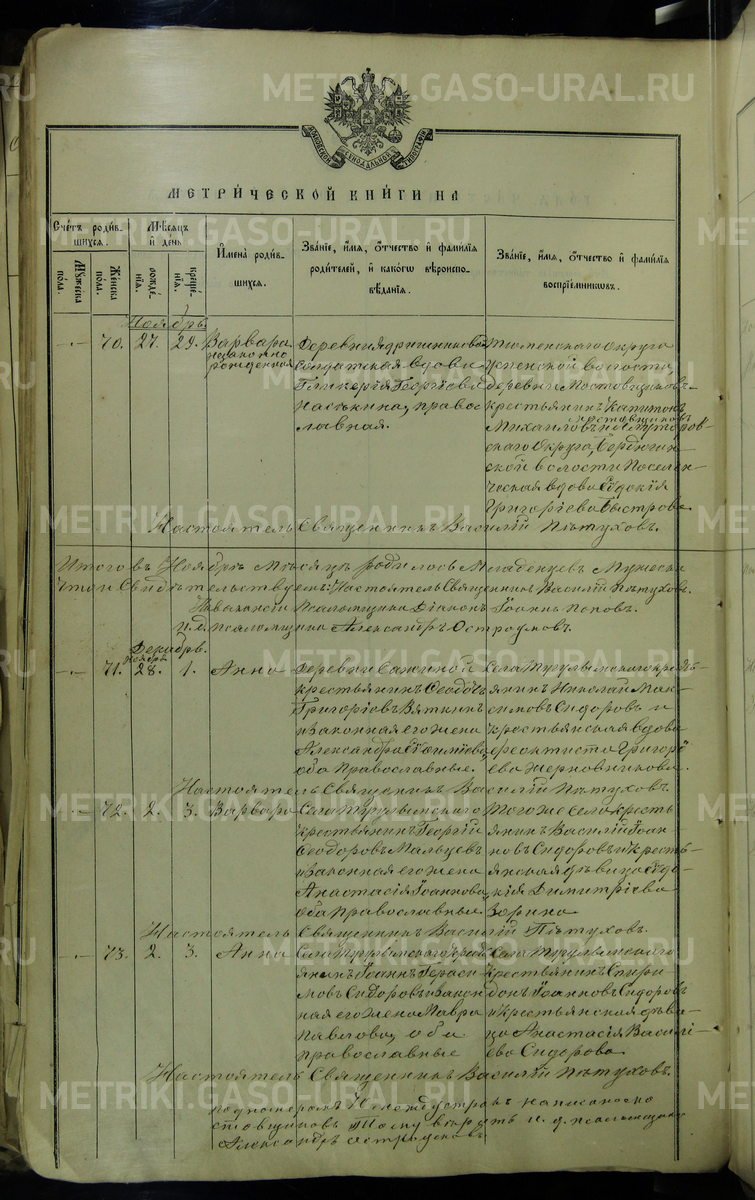 МОСКОВСКОЙ СѴНОДАЛЬНОЙ ТИПОГРАФІИ
МЕТРИ́ЧЕСКОЙ КНИ́ГИ НА
Сче́тъ роди́в-
шихся.
Му́жеска
по́ла.
Же́нска
по́ла.
Мѣ́сяцъ
и҆ де́нь
рожде́-
нїя.
креще́-
нїя.
И҆мена̀ роди́в-
шихся.
Зва́нїе, и҆́мя, ѻ҆́тчество и҆ фами́лїя
роди́телей, и҆ како́гѡ вѣроиспо-
вѣ́данїя.
Зва́нїе, и҆́мя, ѻ҆́тчество и҆ фами́лїя
воспрїе́мникѡвъ.
Ноябрь.
70. 27. 29. Варвара
незаконно
рожденная
Деревни
солдатская вдова
Гликерія Георгіева
Насѣкина, право-
славная.
Тюменскаго Округа
Успенской волости,
деревни Мостовщиковъ
крестьянинъ Капитонъ
Мостовщиковъ
Михаиловъ и Ялуторов-
скаго Округа,
ской волости Поселен-
ческая вдова Евдокія
Григоріева Быстрова
Настоятель Священникъ Василій Пѣтуховъ.
Итого въ Ноябрѣ Мѣсяцѣ родилось Младенцевъ Мужеска
Что и Свидѣтельствуемъ: Настоятель Священникъ Василій Пѣтуховъ.
На вакансіи Псаломщика Діаконъ Іоаннъ Поповъ.
И. д. псаломщика Александръ Остроумовъ.
Декабрь.
Ноября
71. 28. 1. Анна
Деревни Сажиной
крестьянинъ Ѳеодоръ
Григоріевъ Вяткинъ
и законная его жена
Александра
оба Православные.
Села Тугулымскаго кресть-
янинъ Николай Мак-
симовъ Сидоровъ и
крестьянская вдова
Ѳеоктиста Григорі-
ева Жерновникова.
Настоятель Священникъ Василій Пѣтуховъ.
72. 2. 3. Варвара
Села Тугулымскаго
крестьянинъ Георгій
Ѳеодоровъ Мальцевъ
и законная его жена
Анастасія Іоаннова,
оба Православные.
Того же села кресть-
янинъ Василій Іоан-
новъ Сидоровъ и кресть-
янская дѣвица Евдо-
кія Димитріева
Зорина
Настоятель Священникъ Василій Пѣтуховъ.
73. 2. 3. Анна
Села Тугулымскаго кресть-
янинъ Іоаннъ Гераси-
мовъ Сидоровъ и закон-
ная его жена Мавра
Павлова, оба
православные
Села Тугулымскаго
крестьянинъ Спири-
донъ Іоанновъ Сидоровъ
и крестьянская дѣви-
ца Анастасія Василі-
ева Сидорова
Настоятель Священникъ Василій Пѣтуховъ.
подъ номеромъ 70 между строкъ написанному
стовщиковъ Тому вѣрить и. д. псаломщика
Александръ Остроумовъ
METRIKI.GASO-URAL.RU